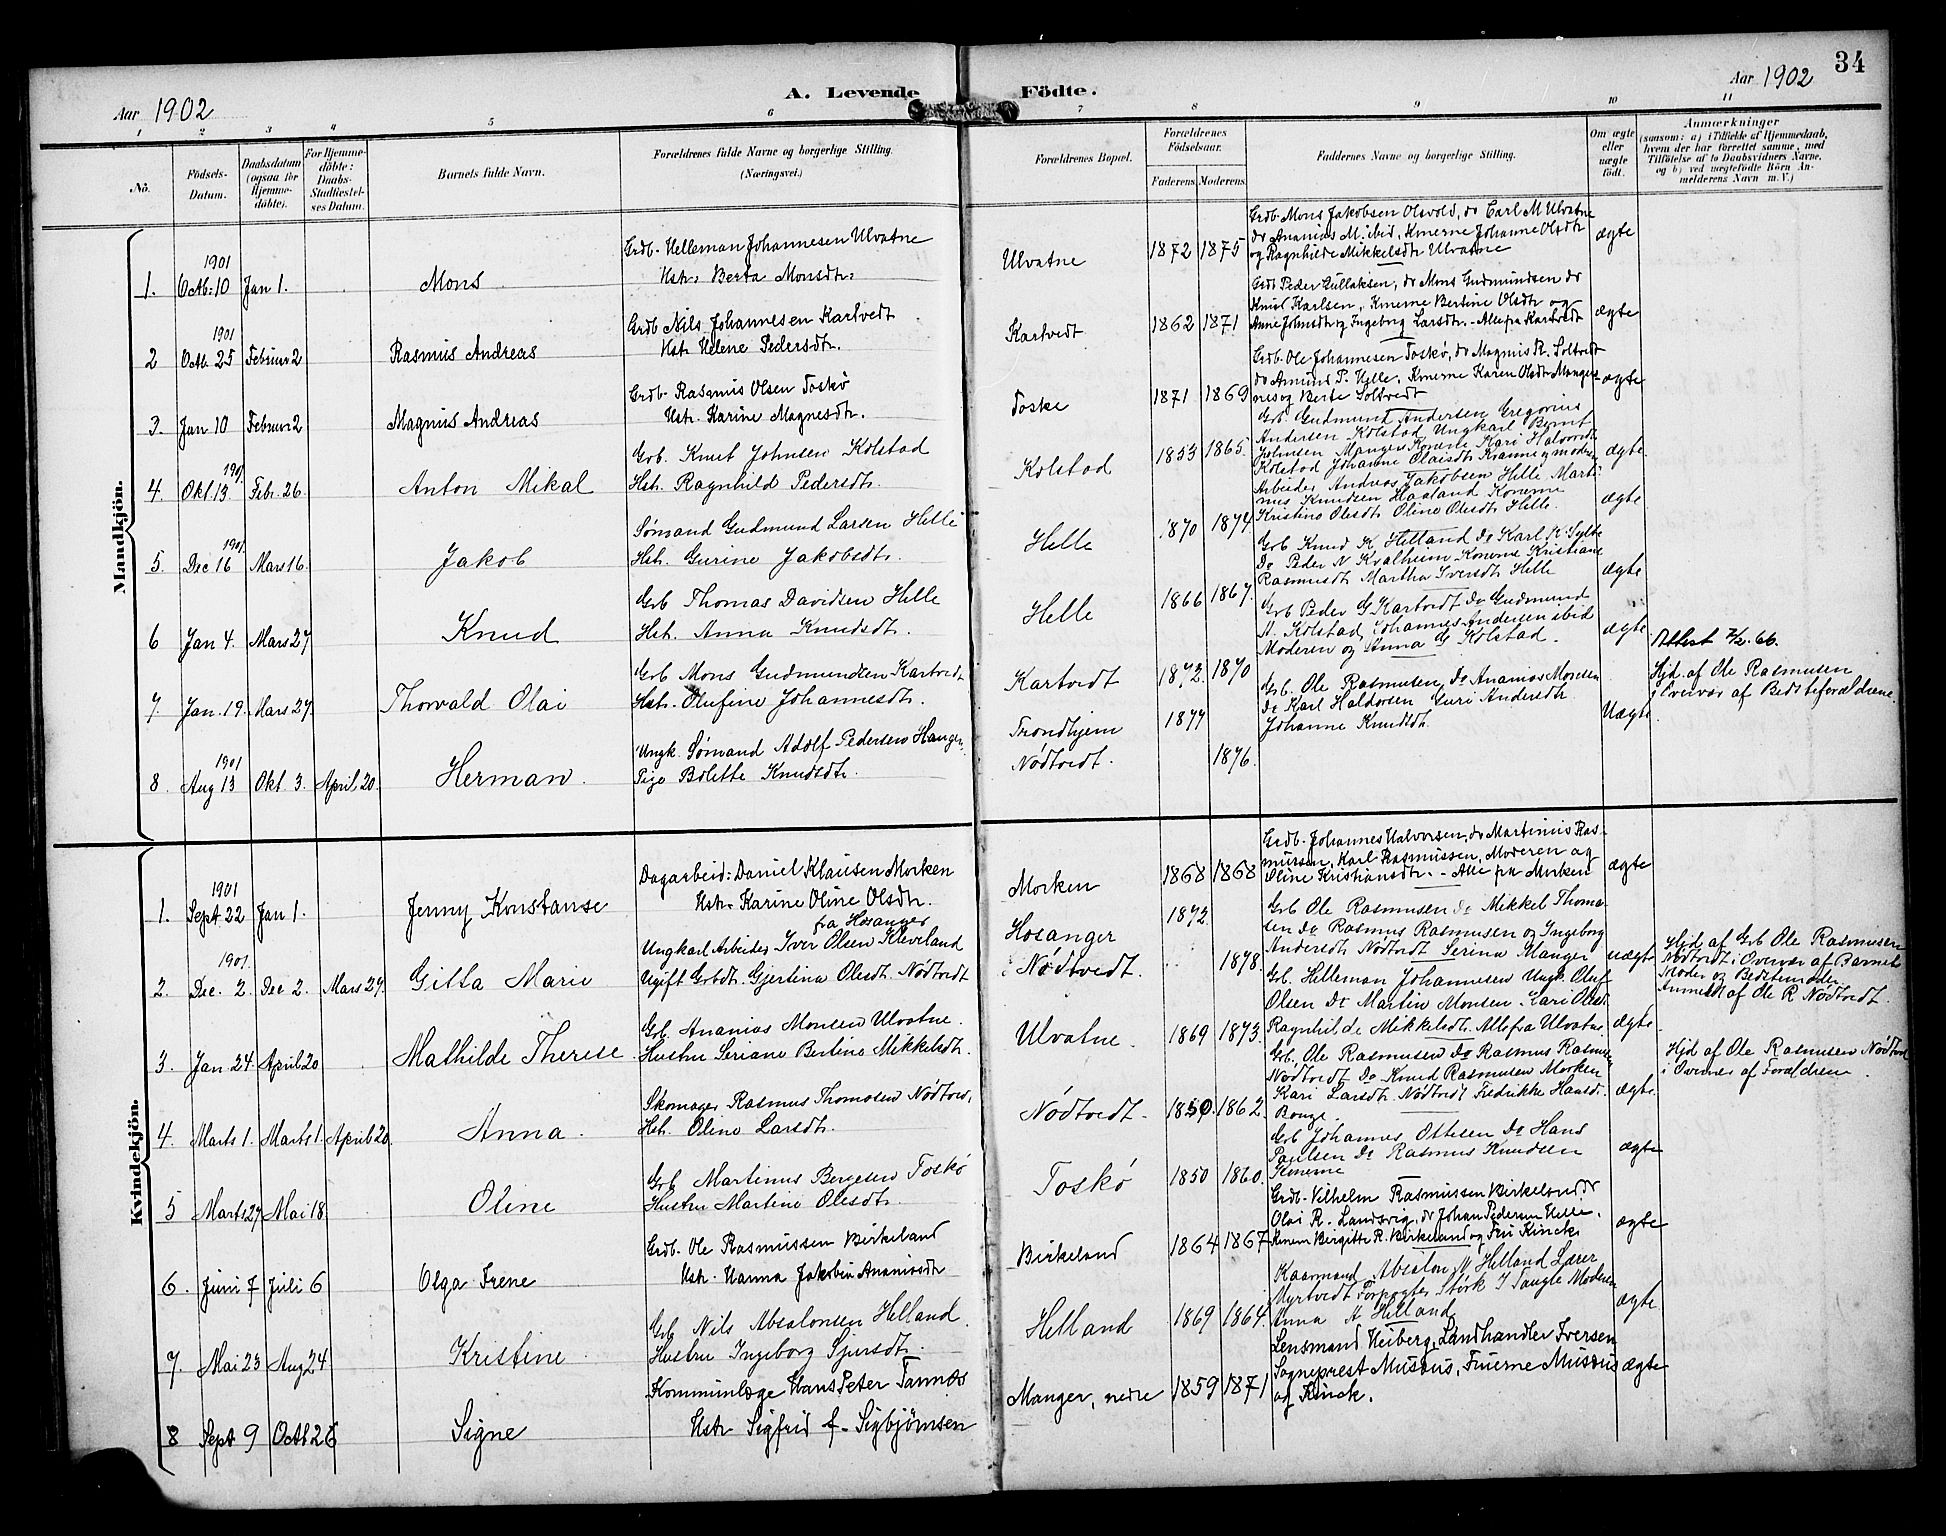 34
Aar 1902
A. Levende Födte.
Aar 1902
1 2 3 4 5 6 7 8 9 10 11
No.
Födsels-Datum.
Daabsdatum (ogsaa for Hjemmedöbte).
For Hjemmedöbte: Daabs-Stadfæstelses Datum.
Barnets fulde Navn.
Forældrenes fulde Navne og borgerlige Stilling. (Næringsvei.)
Forældrenes Bopæl.
Forældrenes Födselsaar.
Faderens. Moderens.
Faddernes Navne og borgerlige Stilling.
Om ægte eller uægte födt.
Anmærkninger
(saasom: a) i Tilfælde af Hjemmedaab,
hvem der har forrettet samme, med
Tilföielse af to Daabsvidners Navne,
og b) ved uægtefödte Börn Anmelderens Navn m. V.)
Mandkjön.
1901
1. Octb. 10 Jan 1. Mons
Grdb. Helleman Johannesen Ulvatne
Hstr. Berta Monsdtr.
Ulvatne 1872 1875
Grdb. Mons Jakobsen Olsvold, do Carl M Ulvatne
do Ananias M. ibid, Konerne Johanne Olsdtr
og Ragnhilde Mikkelsdtr Ulvatne
ægte
1901
2 Octb. 25 Februar 2 Rasmus Andreas
Grdb Nils Johannesen Kartvedt
Hstr Helene Pedersdtr.
Kartvedt 1862 1871
Grdb Peder Gullaksen, do Mons Gudmundsen do
Knud Karlsen, Konerne Bertine Olsdtr og
Anne Johnsdtr og Ingeborg Larsdtr. - Alle fra Kartvedt
ægte
3. Jan 10 Februar 2 Magnus Andreas
Grdb. Rasmus Olsen Toskø
Hstr. Karine Magnesdtr.
Toske 1871 1869
Grdb. Ole Johannesen Toskø, do Magnus R. Soltvedt
do Amund P. Helle, Konerne Karen Olsdtr Manger
og Berte Soltvedt
ægte
1901
4. Okt. 13 Febr. 26. Anton Mikal
Grb. Knut Johnsen Kolstad
Hstr. Ragnhild Pedersdtr.
Kolstad 1853 1865.
Grb. Gudmund Andersen Gregorius
Andersen Kolstad Ungkarl Bernt
Johnsen Manger Konerne Kari Halvorsdtr
Kolstad Johanne Olaisdtr Kranne og moderen
ægte
1901
5. Dec 16 Mars 16. Jakob
Sømand Gudmund Larsen Helle
Hstr. Gurine Jakobsdtr.
Helle 1870 1874
Arbeider Andreas Jakobsen Helle Marti-
nus Knudsen Haaland Konerne
Kristine Olesdtr Oline Olesdtr Helle.
ægte
6 Jan 4. Mars 27 Knud
Grb Thomas Davidsen Helle
Hstr. Anna Knudsdtr.
Helle 1866 1867.
Grb Knud K Helland Do Karl K. Sylte
Do Peder N Kvalheim Konerne Kristiane
Rasmusdtr Martha Iversdtr Helle
ægte
7. Jan. 19. Mars 27. Thorvald Olai
Grb Mons Gudmundsen Kartvedt
Hstr. Olufine Johannesdtr.
Kartvedt 1872. 1870
Grb Peder G Kartvedt Do Gudmund
A. Kolstad, Johannes Andersen ibid
Moderen og Anna G Kolstad.
ægte
Attest 7/2. 66.
1901
8. Aug 13 Okt 3. April 20. Herman.
Ungk. Sømand Adolf Pedersen Haugen.
Pige Bolette Knudsdtr.
Trondhjem 1877
Nødtvedt. 1876.
Grb. Ole Rasmusen, Do Ananias Monsen
Do Karl Haldorsen Guri Andersdtr
Johanne Knudsdtr.
Uægte.
Hjd. af Ole Rasmusen
i Overvær af Bedsteforældrene
Kvindekjön.
1901
1. Sept. 22 Jan 1. Jenny Konstanse
Dagarbeid: Daniel Klausen Morken
Hstr Karine Oline Olsdtr.
Morken 1868 1868
Grdb. Johannes Halvorsen, do Martinius Ras-
mussen, Karl Rasmussen, Moderen og
Oline Kristiansdtr. - Alle fra Morken
ægte
1901.
2. Dec. 2. Dec 2. Mars 27. Gitta Marie
fra Hosanger
Ungkarl Arbeider Iver Olsen Kleveland
Ugift Grbdt. Gjertina Olesdt. Nødtvedt
Hosanger 1872.
Nødtvedt. 1878.
Grb Ole Rasmusen Do Mikkel Thoma-
sen Do Rasmus Rasmusen og Ingeborg
Andersdt Nødtvedt Serina Manger
uægte
Hjd af Grb Ole Rasmusen
Nødtvedt i Overvær af Barnets
Moder og Bedstemoder.
Anmeldt af Ole R Nødtvedt.
3. Jan 24 April 20 Mathilde Therese
Grb Ananias Monsen Ulvatne.
Hustru Seriane Bertine Mikkelsdtr.
Ulvatne. 1869 1873.
Grb. Helleman Johannesen Ungk. Oluf
Olsen Do Martin Monsen Kari Olsdt.
Ragnhilde Mikkelsdtr. Alle fra Ulvatne
ægte.
4. Marts 1. Marts 1. April 20. Anna.
Skomager Rasmus Thomasen Nødtvedt,
Hstr. Oline Larsdtr.
Nødtvedt. 1850. 1862.
Grb. Ole Rasmusen Do Rasmus Rasmusen
Nødtvedt Do Knud Rasmusen Morken
Kari Larsdtr Nødtvedt Fredrikke Hansdr.
ægte.
Hjd af Ole Rasmusen Nødtved
i Overvær af Forældrene.
5 Marts 27 Mai 18. Oline
Grb Martinus Bergesen Toskø
Hustru Martine Olesdtr.
Toskø 1850 1860.
Grb Johannes Ottesen Do Hans
Paulsen Do Rasmus Knudsen
Konerne
ægte
6. Juni 7 Juli 6 Olga Irene
Grdb. Ole Rasmussen Birkeland
Hstr. Hanna Jakobin Ananiasdtr
Birkeland 1864 1867
Grdb. Vilhelm Rasmussen Birkeland do
Olai R. Landsvig, do Johan Pedersen Helle,
Konem Birgitte R. Birkeland og Fru Kinck.
ægte
7. Mai 23 Aug 24 Kristine.
Grb Nils Absalonsen Helland.
Hustru Ingeborg Sjursdtr.
Helland 1869 1864.
Kaarmand Absalon N Helland Lærer
Myrtvedt Forpagter Størk J Taugle Moderen
Anna A. Helland
ægte.
8 Sept 9 Octb 26 Signe
Kommunlæge Hans Peter Tannæs
Hstr Sigfrid f. Sigbjørnsen
Manger, nedre 1859 1871
Lensmand Heiberg, Landhandler Iversen
Sogneprest Musæus, Fruerne Musæus
og Kinck.
ægte